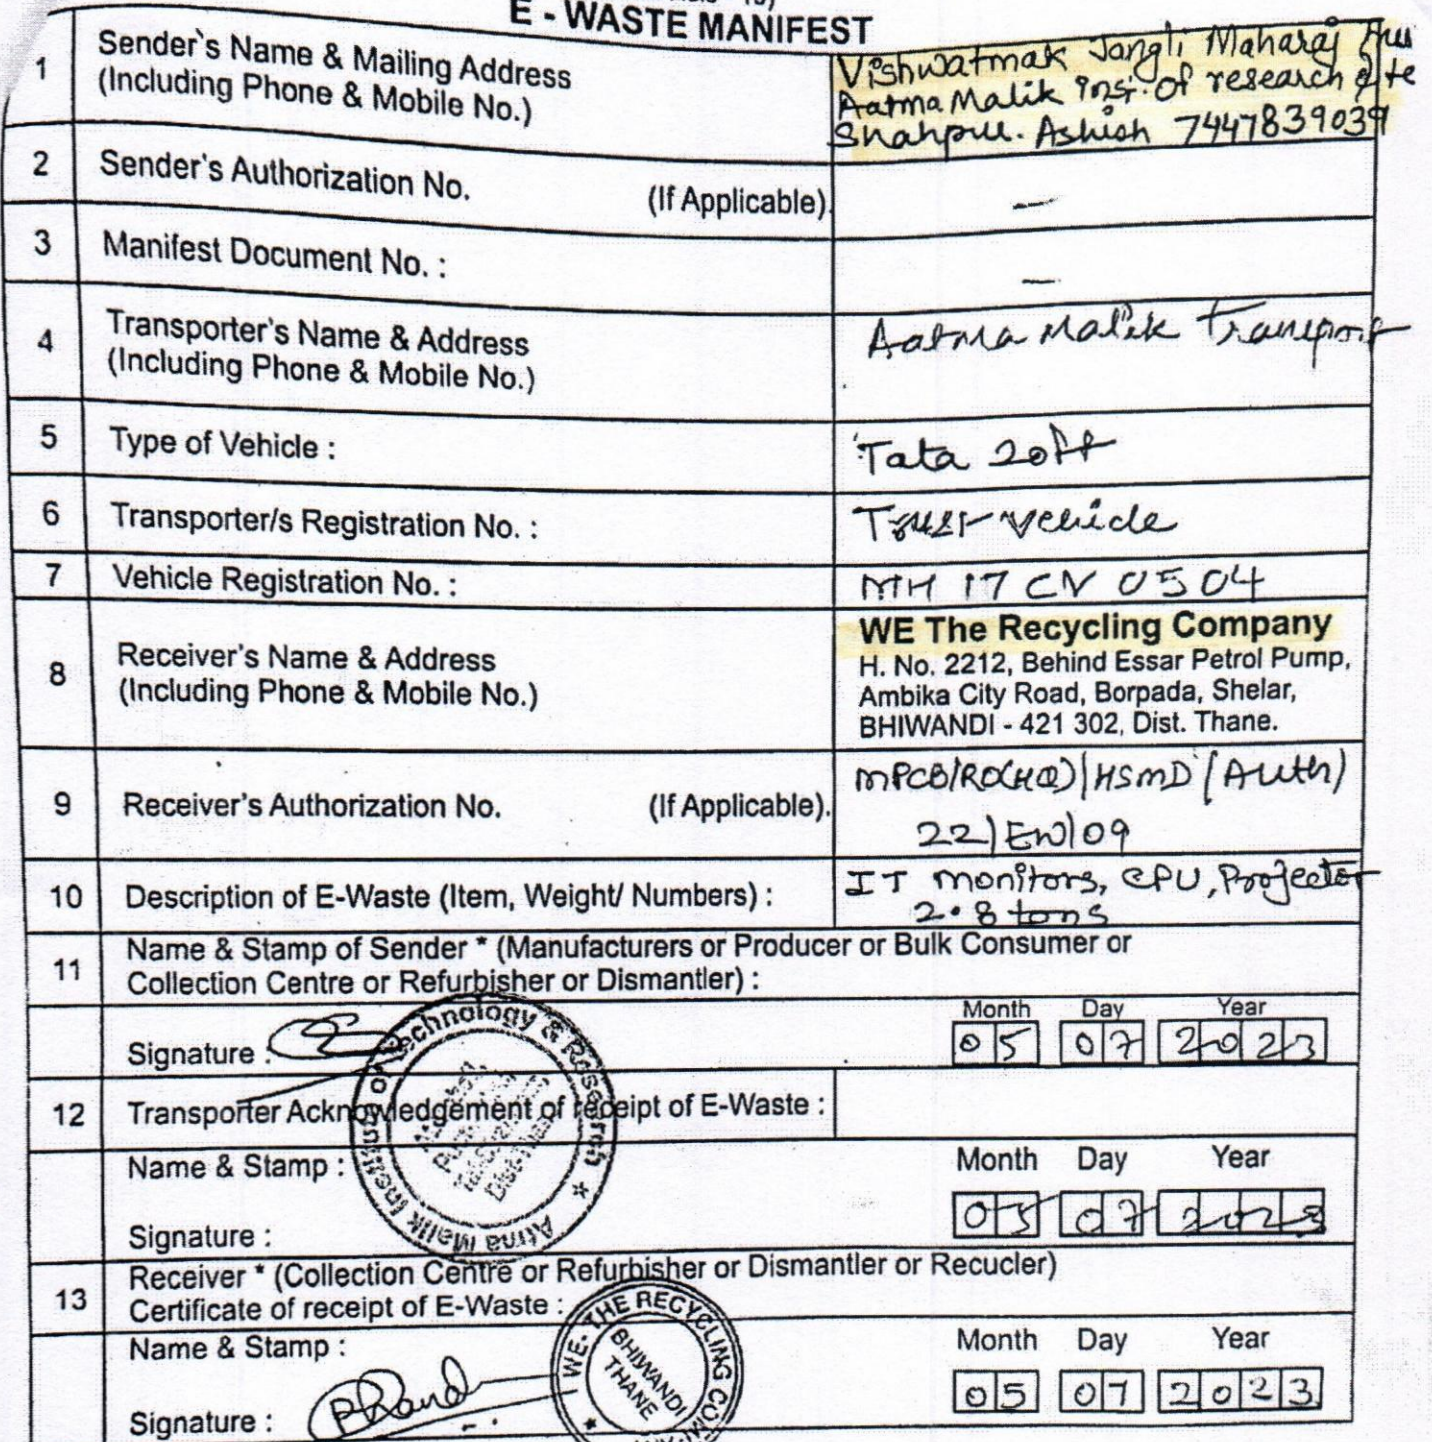 E - WASTE MANIFEST
1 Sender's Name & Mailing Address
(Including Phone & Mobile No.)
Vishwatmak Jangli Maharaj
Aatma Malik inst. Of research &
Shahpur. Ashish 7447839039
2 Sender's Authorization No. (If Applicable). -
3 Manifest Document No. : -
4 Transporter's Name & Address
(Including Phone & Mobile No.)
Aatma Malik Transport
5 Type of Vehicle : Tata 20ft
6 Transporter/s Registration No. : Trust vehicle
7 Vehicle Registration No. : MH 17 CV 0504
8 Receiver's Name & Address
(Including Phone & Mobile No.)
WE The Recycling Company
H. No. 2212, Behind Essar Petrol Pump,
Ambika City Road, Borpada, Shelar,
BHIWANDI - 421 302, Dist. Thane.
9 Receiver's Authorization No. (If Applicable).
MPCB/RO(HQ)|HSMD (Auth)
22|EW|09
10 Description of E-Waste (Item, Weight/ Numbers) :
IT monitors, CPU, Projector
2.8 tons
11 Name & Stamp of Sender * (Manufacturers or Producer or Bulk Consumer or
Collection Centre or Refurbisher or Dismantler) :
Month Day Year
Signature : 05 07 2023
Technology & Research
Atma Malik Institute of
12 Transporter Acknowledgement of receipt of E-Waste :
Name & Stamp : Month Day Year
05 07 2023
Signature :
13 Receiver * (Collection Centre or Refurbisher or Dismantler or Recucler)
Certificate of receipt of E-Waste :
Name & Stamp : Month Day Year
05 07 2023
Signature :
WE- THE RECYCLING
BHIWANDI
THANE